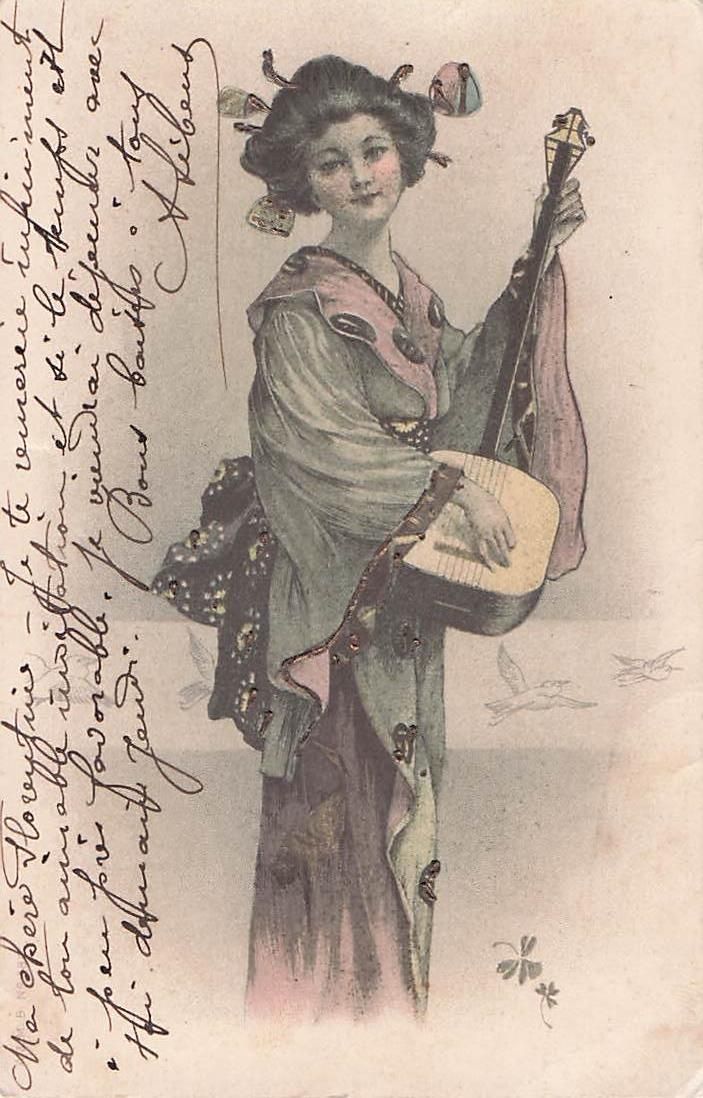 Ma chère Florentine – Je te remercie infiniment
de ton aimable invitation et si le temps est
à peu près favorable. je viendrai déjeuner avec
toi demain jeudi. Bons baisers à tous